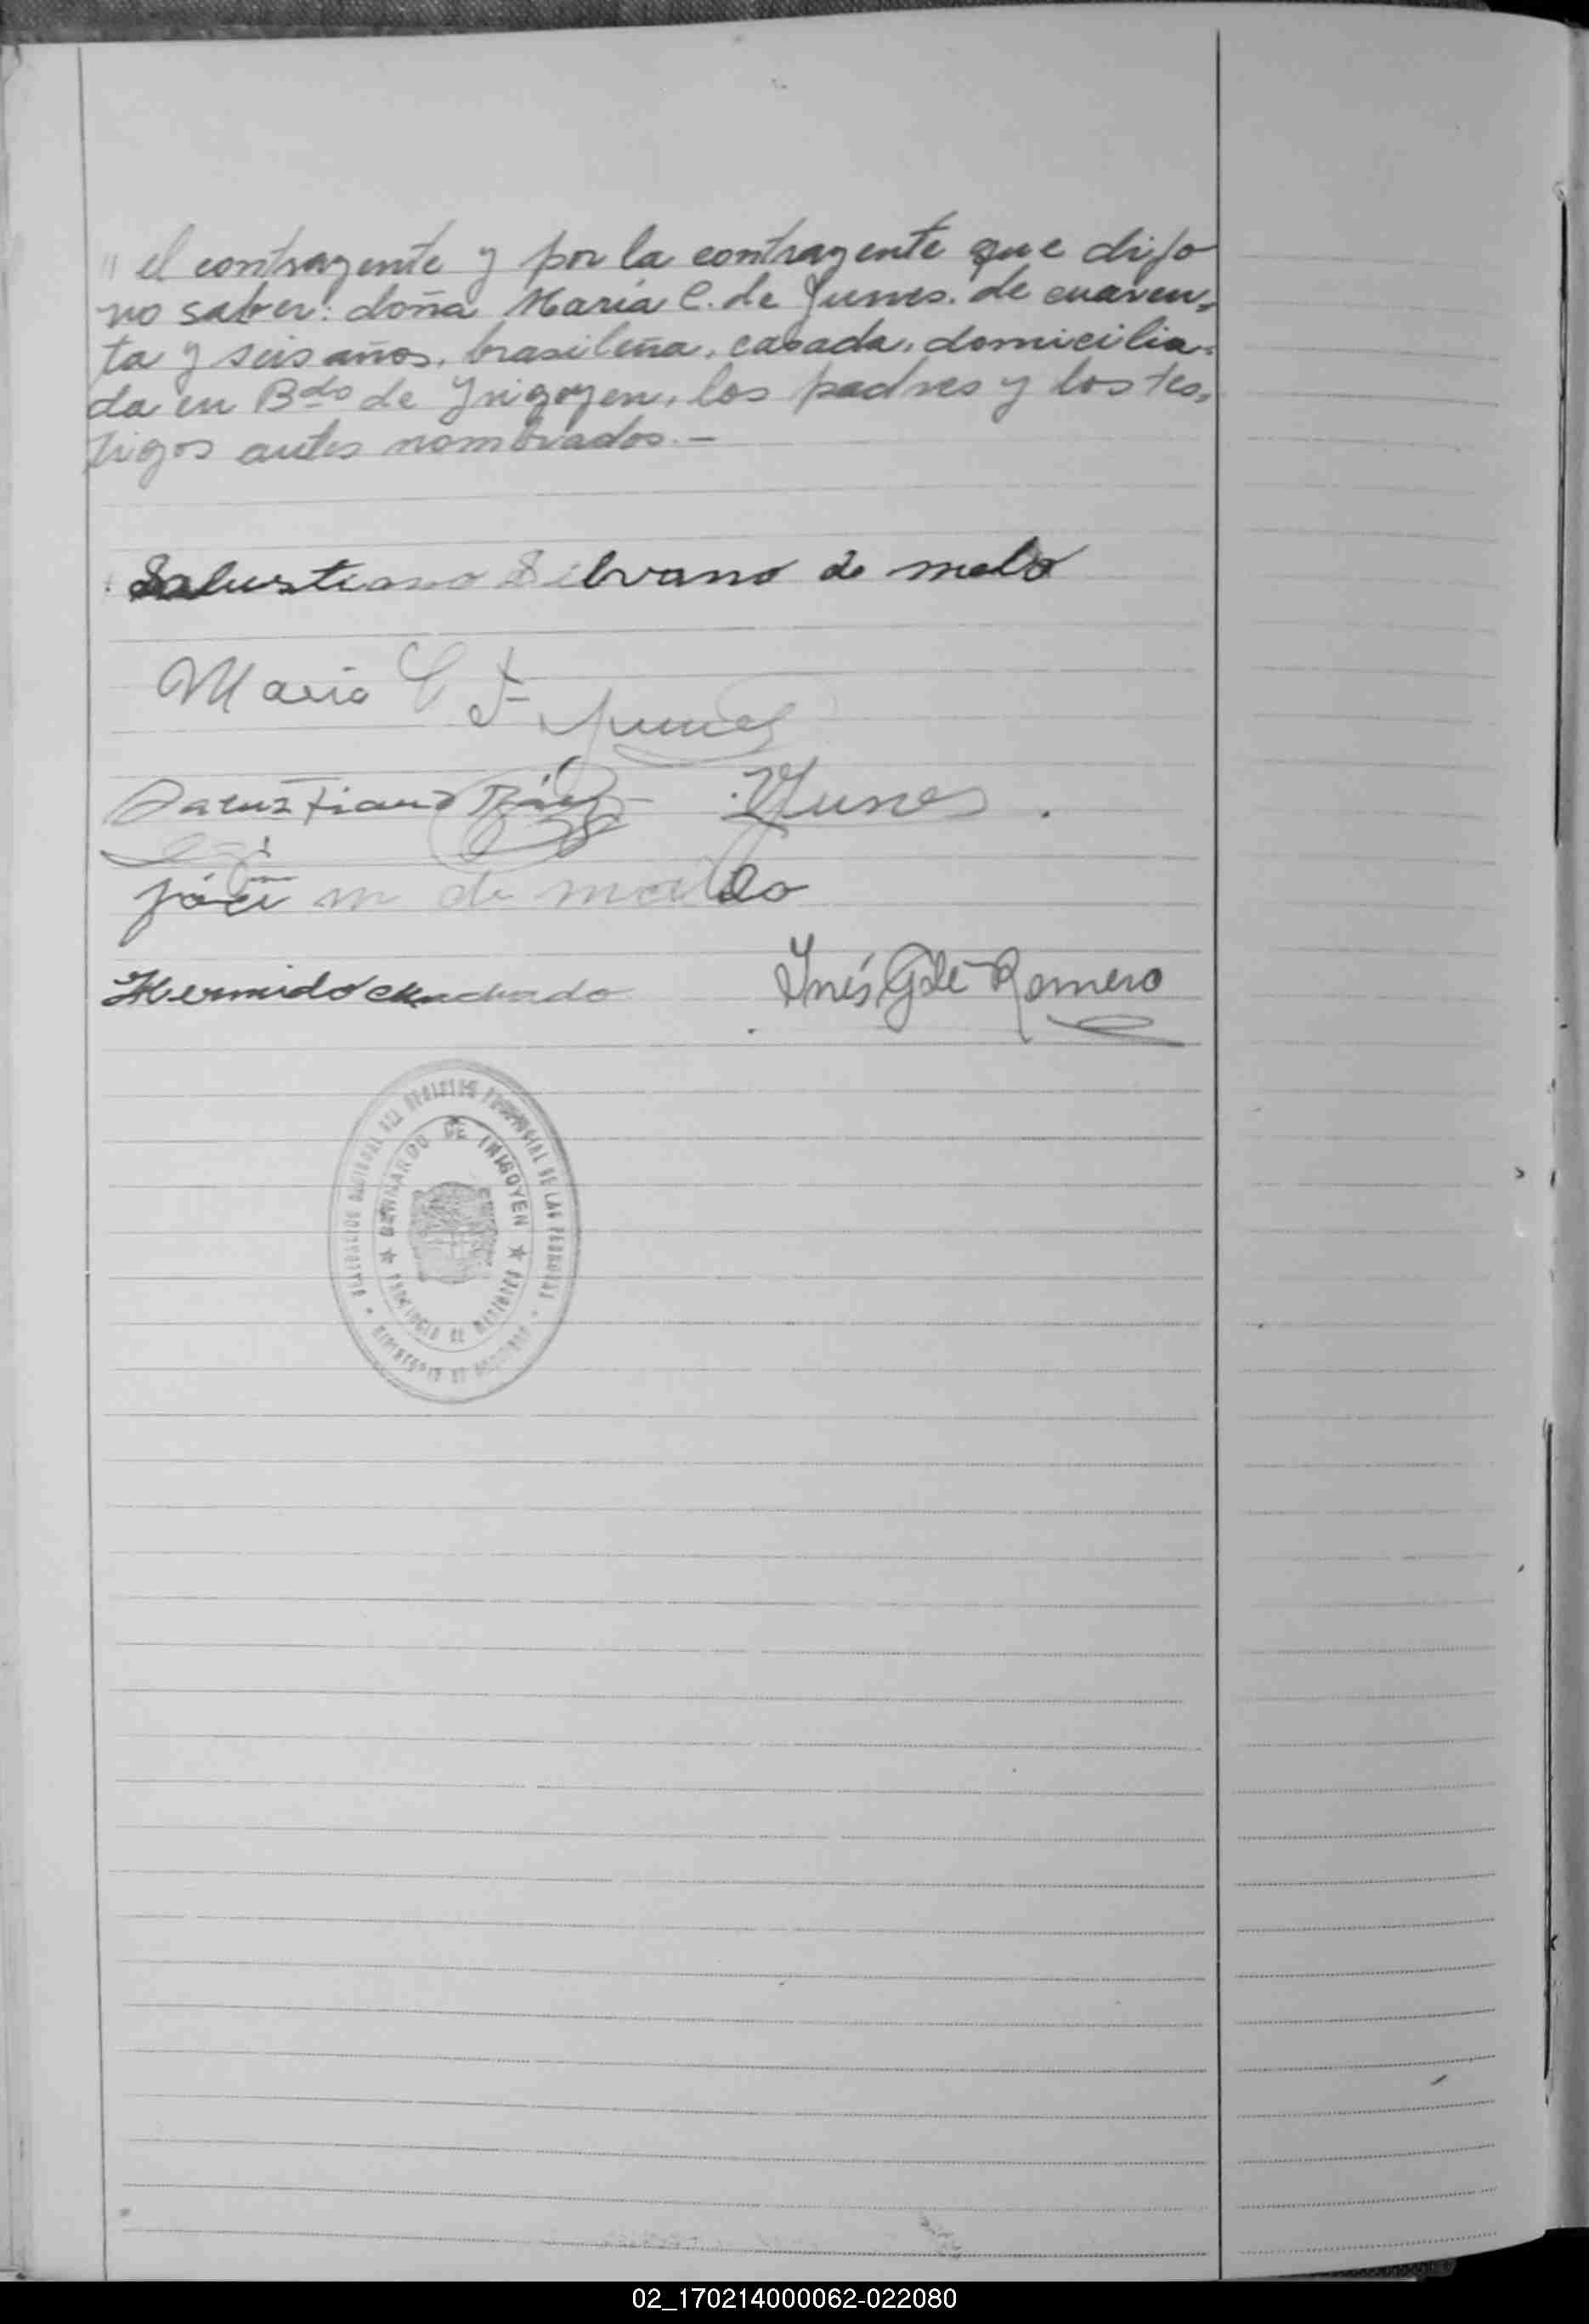 " el contrayente y por la contrayente que dijo
no saber: doña Maria C. de Yunes. de cuaren,
ta y seis años, brasileña, casada, domicilia,
da en Bdo de Yrigoyen, los padres y los tes,
tigos antes nombrados. —
Salustiano Silvano de melo
Maria C de Yunes
Yunes.
m de mello
Hermido Machado Inés G de Romero
REGISTRO PROVINCIAL DE LAS PERSONAS
★ BERNARDO DE IRIGOYEN ★
PROVINCIA DE MISIONES
MINISTERIO DE GOBIERNO
02_170214000062-022080